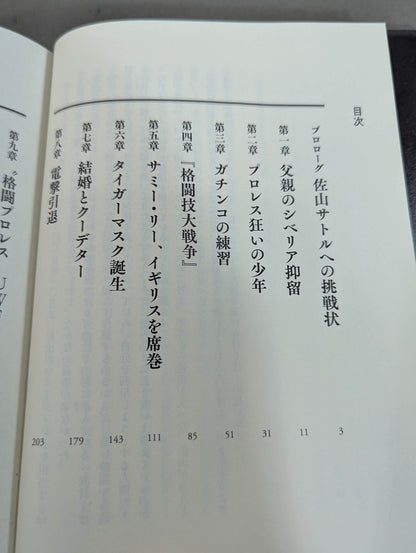 目次
プロローグ 佐山サトルへの挑戦状 3
第一章 父親のシベリア抑留 11
第二章 プロレス狂いの少年 31
第三章 ガチンコの練習 51
第四章 『格闘技大戦争』 85
第五章 サミー・リー、イギリスを席巻 111
第六章 タイガーマスク誕生 143
第七章 結婚とクーデター 179
第八章 電撃引退 203
第九章 “格闘プロレス UWF